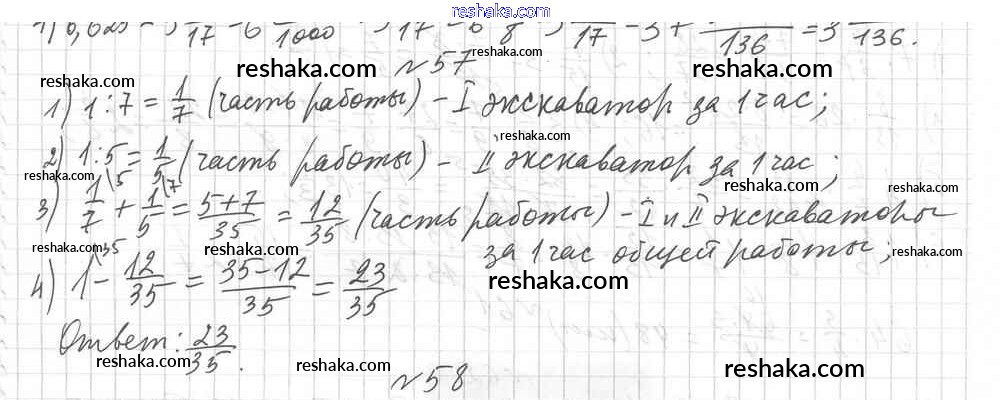 reshaka.com
reshaka.com
№ 57
reshaka.com reshaka.com reshaka.com
1) 1 : 7 = 1/7 (часть работы) – I экскаватор за 1 час;
reshaka.com
2) 1 : 5 = 1/5 (часть работы) – II экскаватор за 1 час;
reshaka.com reshaka.com reshaka.com
3) 1/7 \5 + 1/5 \7 = 5+7/35 = 12/35 (часть работы) – I и II экскаваторы
за 1 час общей работы;
reshaka.com reshaka.com reshaka.com reshaka.com
4) 1 \35 – 12/35 = 35–12/35 = 23/35
reshaka.com
Ответ: 23/35.
reshaka.com reshaka.com reshaka.com reshaka.com
№ 58